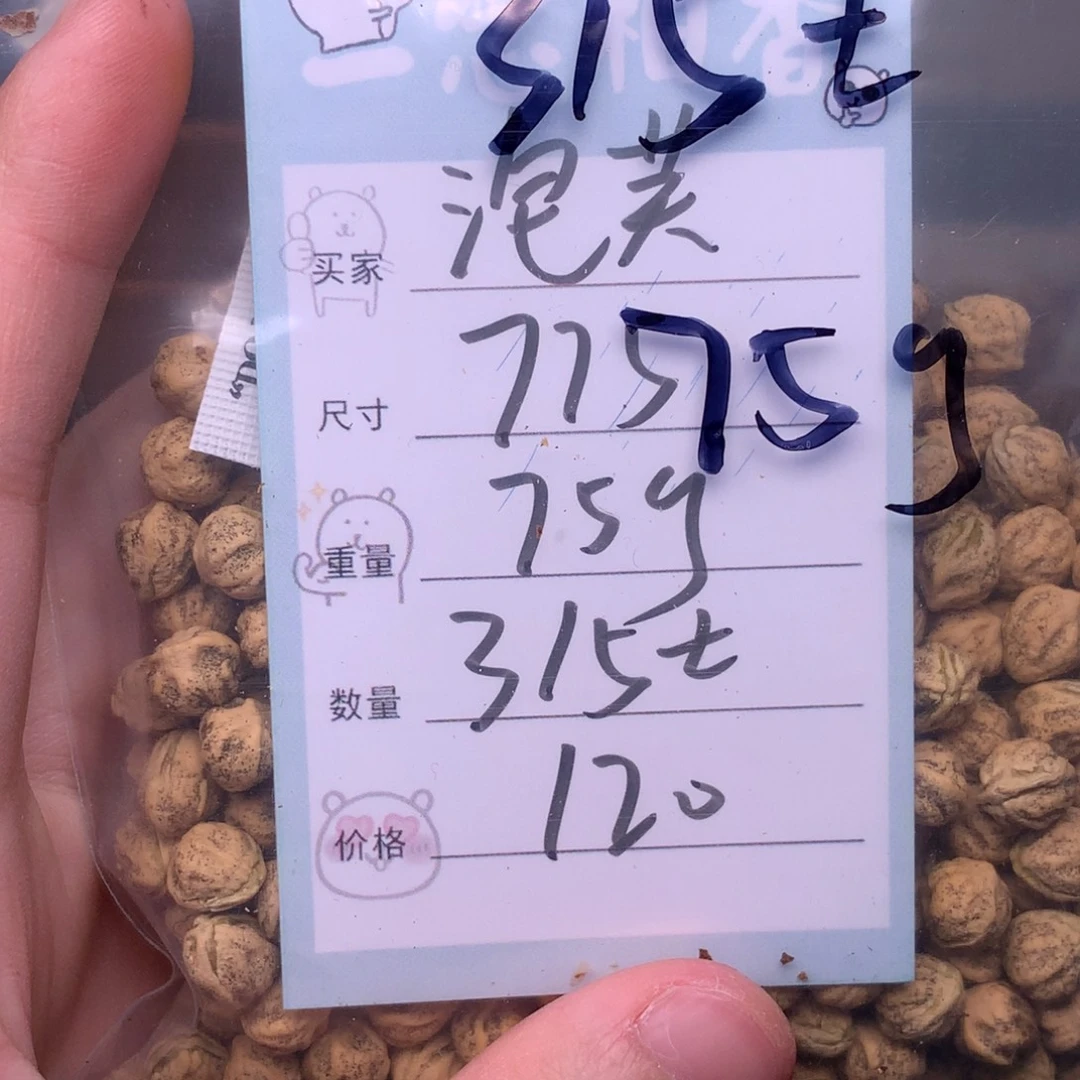 315t
买家 泡芙
尺寸 775 75g
重量 75g
数量 315t
价格 120